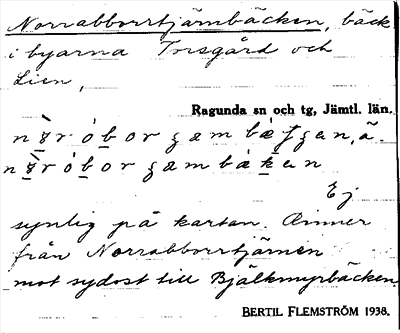 Norrabborrtjärnbäcken, bäck
i byarna Trisgård och
Lien,
Ragunda sn och tg, Jämtl. län.
Ej
synlig på kartan. Rinner
från Norrabborrtjärnen
mot sydost till Bjälkmyrbäcken.
BERTIL FLEMSTRÖM 1938.